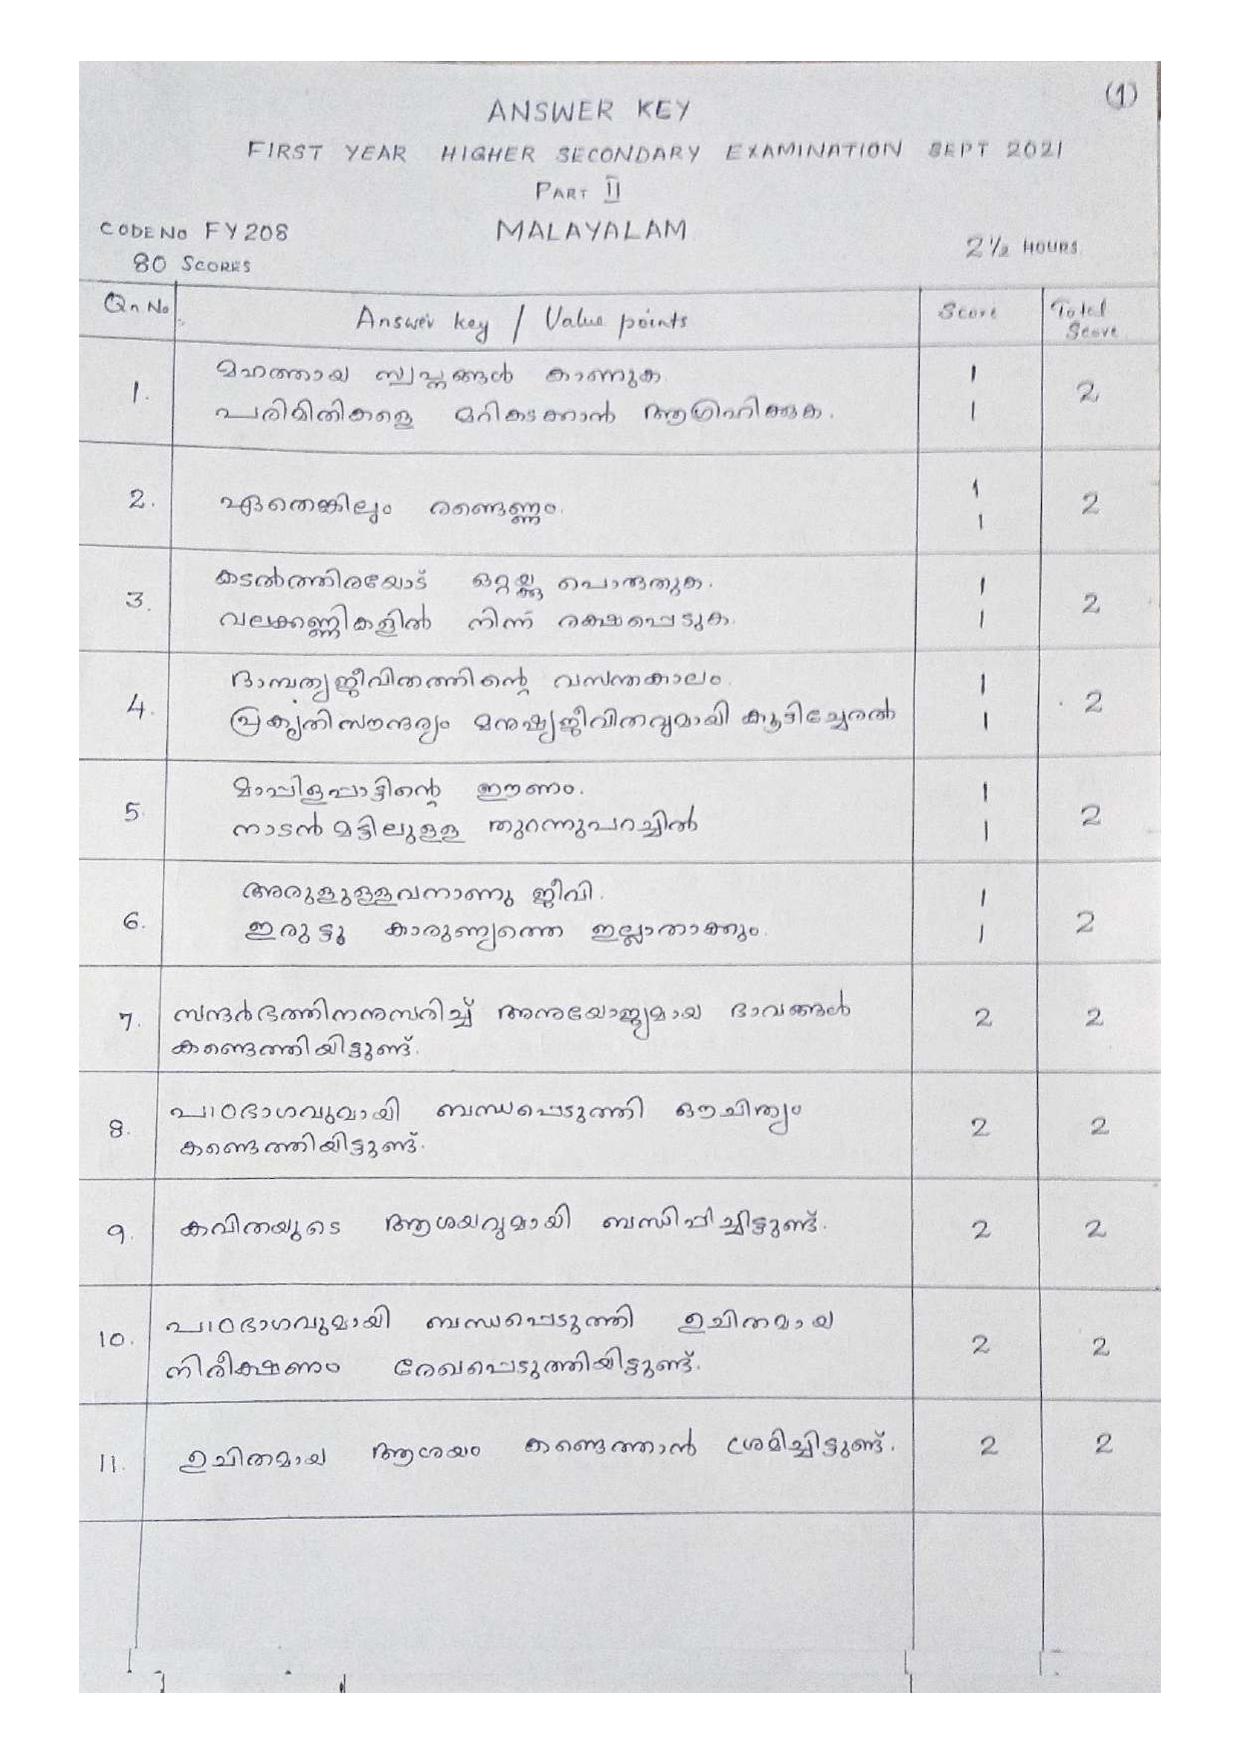 (1)
ANSWER KEY
FIRST YEAR HIGHER SECONDARY EXAMINATION SEPT 2021
PART II
CODE NO FY 208 MALAYALAM 2½ HOURS
80 SCORES
Qn No Answer key / Value points Score Total Score
1. മഹത്തായ സ്വപ്നങ്ങൾ കാണുക 1 2
പരിമിതികളെ മറികടക്കാൻ ആഗ്രഹിക്കുക. 1
2. ഏതെങ്കിലും രണ്ടെണ്ണം. 1 1 2
3. കടൽത്തിരയോട് ഒറ്റയ്ക്കു പൊരുതുക. 1 2
വലക്കണ്ണികളിൽ നിന്ന് രക്ഷപ്പെടുക. 1
4. ദാമ്പത്യജീവിതത്തിന്റെ വസന്തകാലം. 1 2
പ്രകൃതിസൗന്ദര്യം മനുഷ്യജീവിതവുമായി കൂട്ടിച്ചേരൽ 1
5. മാപ്പിളപ്പാട്ടിന്റെ ഈണം. 1 2
നാടൻ മട്ടിലുള്ള തുറന്നുപറച്ചിൽ 1
6. അരുളുള്ളവനാണു ജീവി. 1 2
ഇരുട്ടു കാരുണ്യത്തെ ഇല്ലാതാക്കും. 1
7. സന്ദർഭത്തിനനുസരിച്ച് അനുയോജ്യമായ ഭാവങ്ങൾ 2 2
കണ്ടെത്തിയിട്ടുണ്ട്.
8. പാഠഭാഗവുമായി ബന്ധപ്പെടുത്തി ഔചിത്യം 2 2
കണ്ടെത്തിയിട്ടുണ്ട്.
9. കവിതയുടെ ആശയവുമായി ബന്ധിപ്പിച്ചിട്ടുണ്ട്. 2 2
10. പാഠഭാഗവുമായി ബന്ധപ്പെടുത്തി ഉചിതമായ 2 2
നിരീക്ഷണം രേഖപ്പെടുത്തിയിട്ടുണ്ട്.
11. ഉചിതമായ ആശയം കണ്ടെത്താൻ ശ്രമിച്ചിട്ടുണ്ട്. 2 2